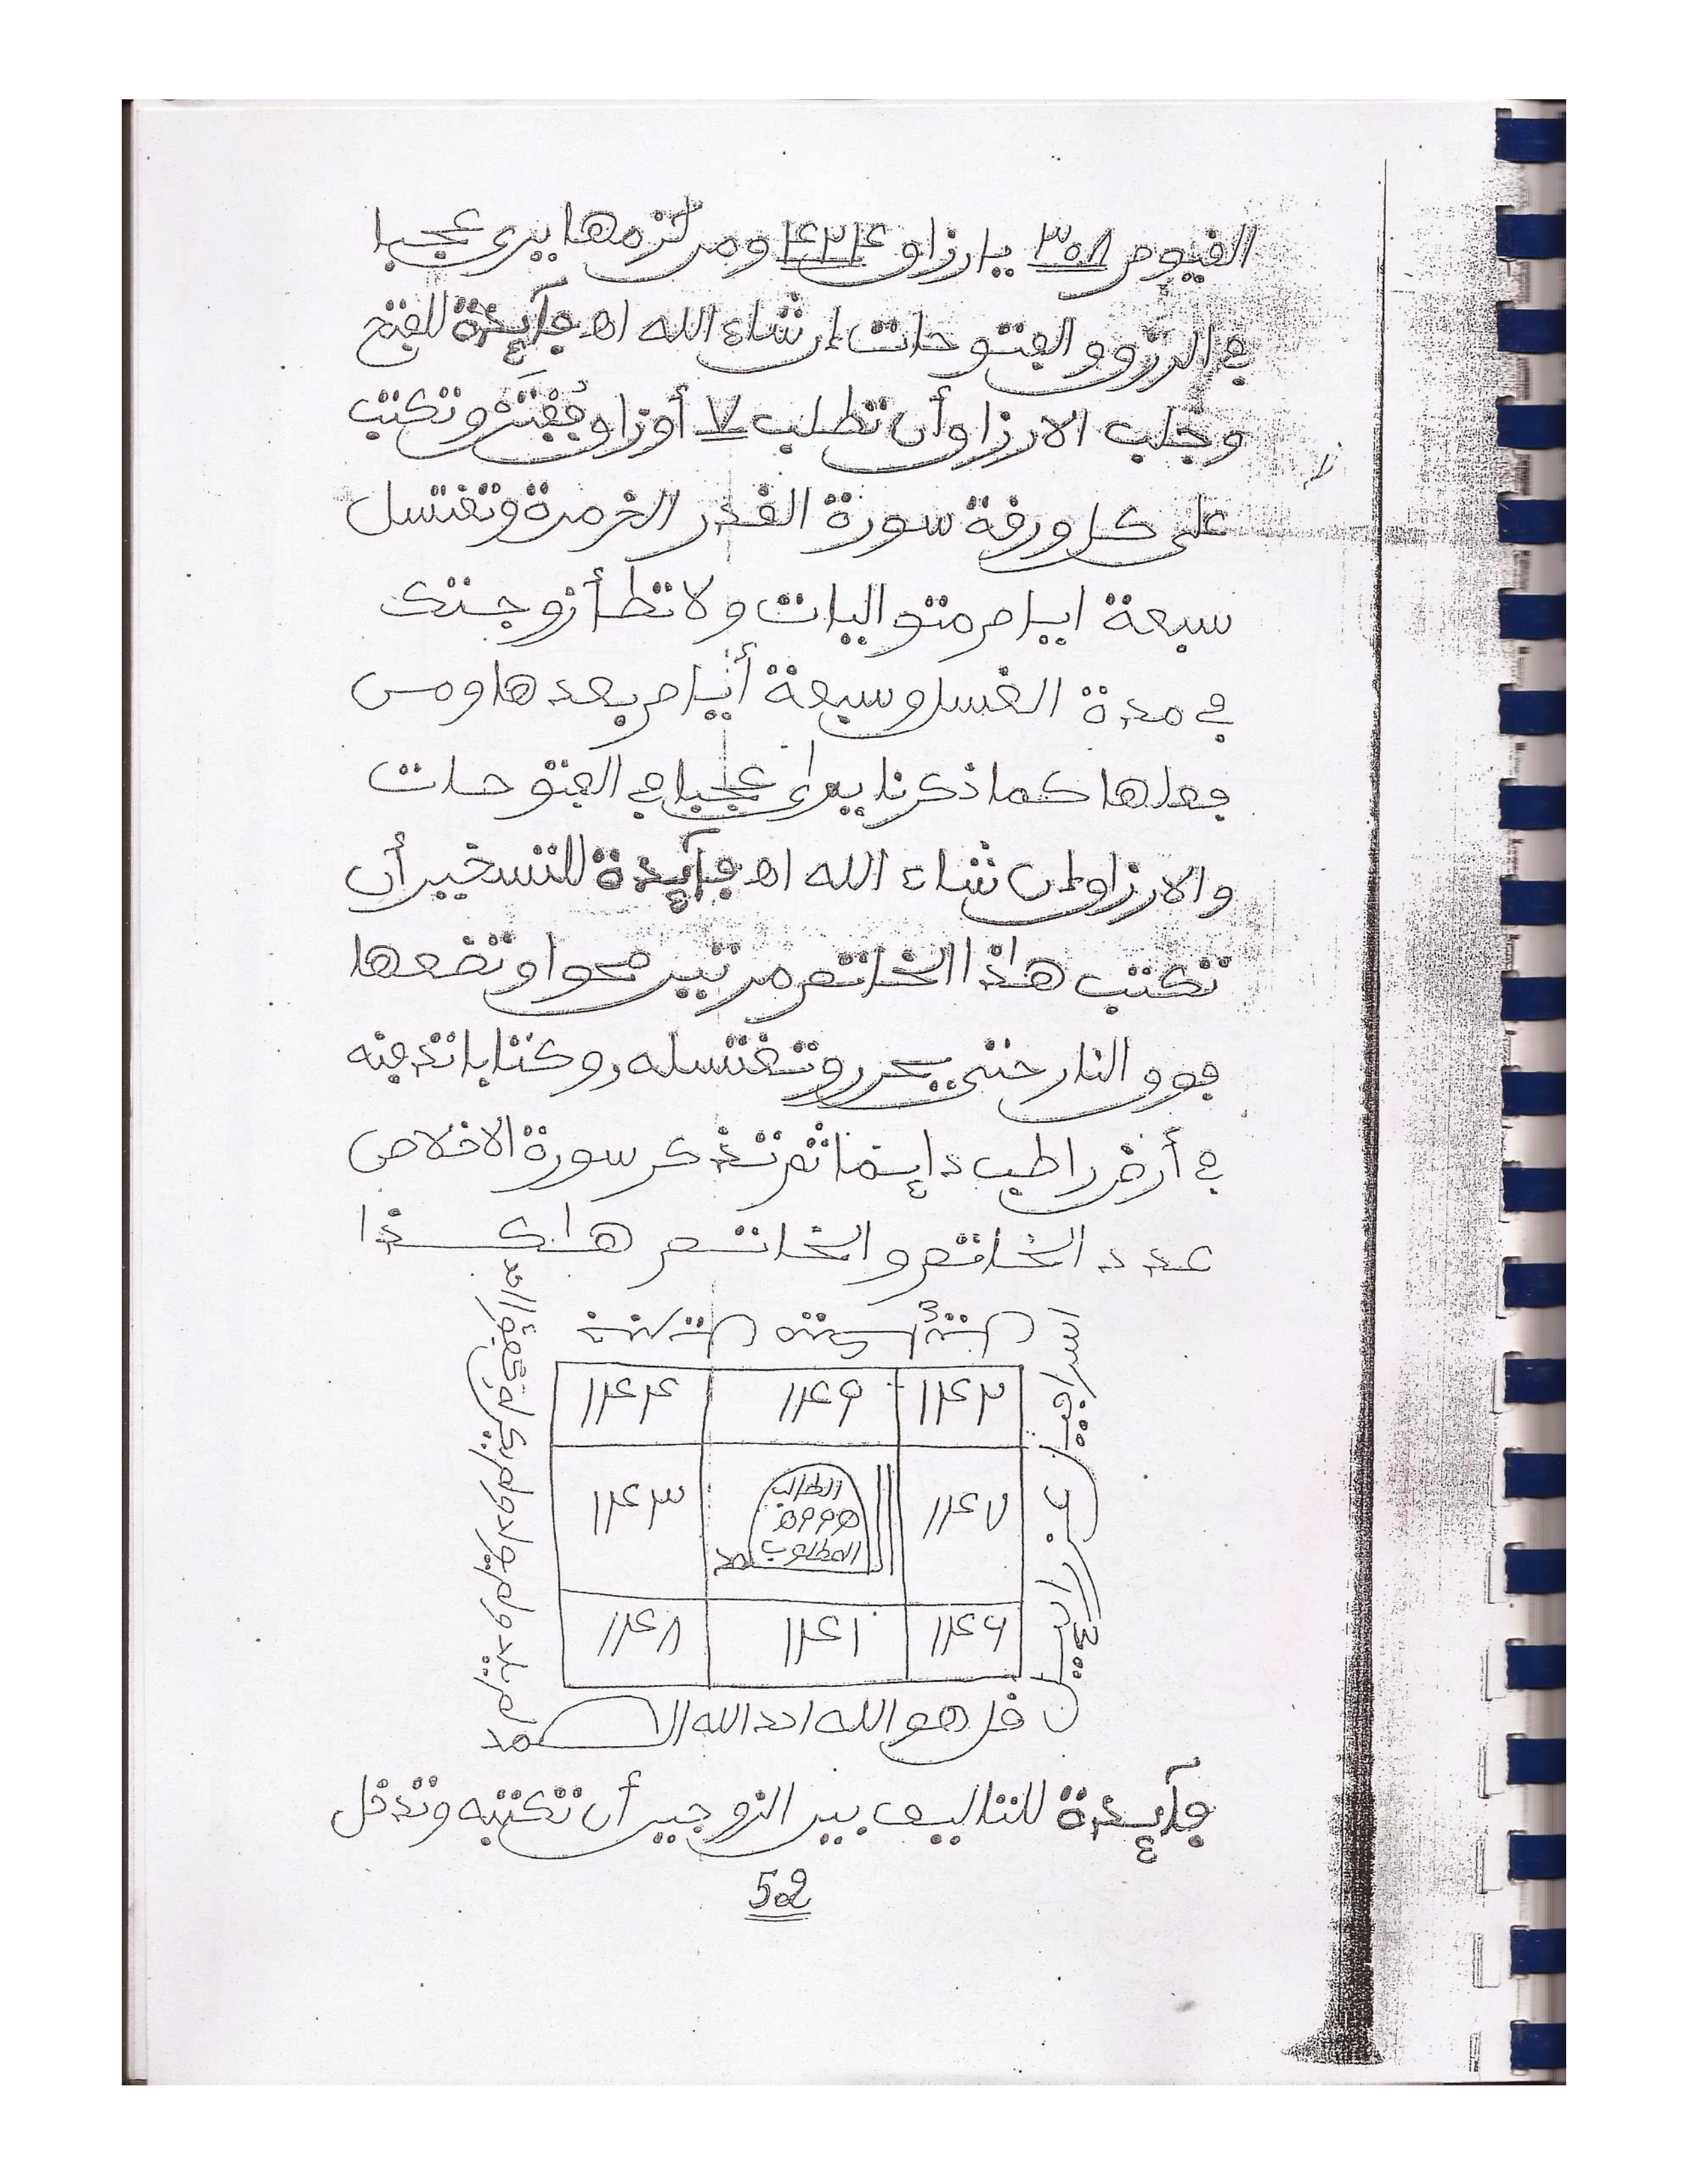 القيوم ٣٠٨ يا رزاق ٤٢٤ ومن كثرمها يرى عجبا
في الرزق والفتوحات إن شاء الله اهـ فآيدة للفتح
وجلب الارزاق أن تطلب ٧ أوراق وتكتب
على كل ورقة سورة القدر الخ مرة وتغتسل
سبعة ايام متواليات ولا تطأ زوجتك
في مدة الغسل وسبعة أيام بعدها ومن
فعلها كما ذكرنا يرى عجبا في الفتوحات
والارزاق إن شاء الله اهـ فآيدة للتسخير أن
تكتب هاذا الخاتم مرتين محوا وتضعها
فوق النار حتى يحرر وتغتسله وكتابا تدفنه
في أرض راطب دايما ثم تذكر سورة الاخلاص
عدد الخاتم والخاتم هاكذا
اسرافيل
عزرائيل
١١٤٤ ١١٤٩ ١١٤٢
١١٤٣ الطالب ١١٤٧
المطلوب
١١٤٨ ١١٤١ ١١٤٦
لم يلد ولم يولد ولم يكن له كفؤا احد
قل هو الله احد الله الصمد
فآيدة للتاليف بين الزوجين أن تكتبه وتدخل
52